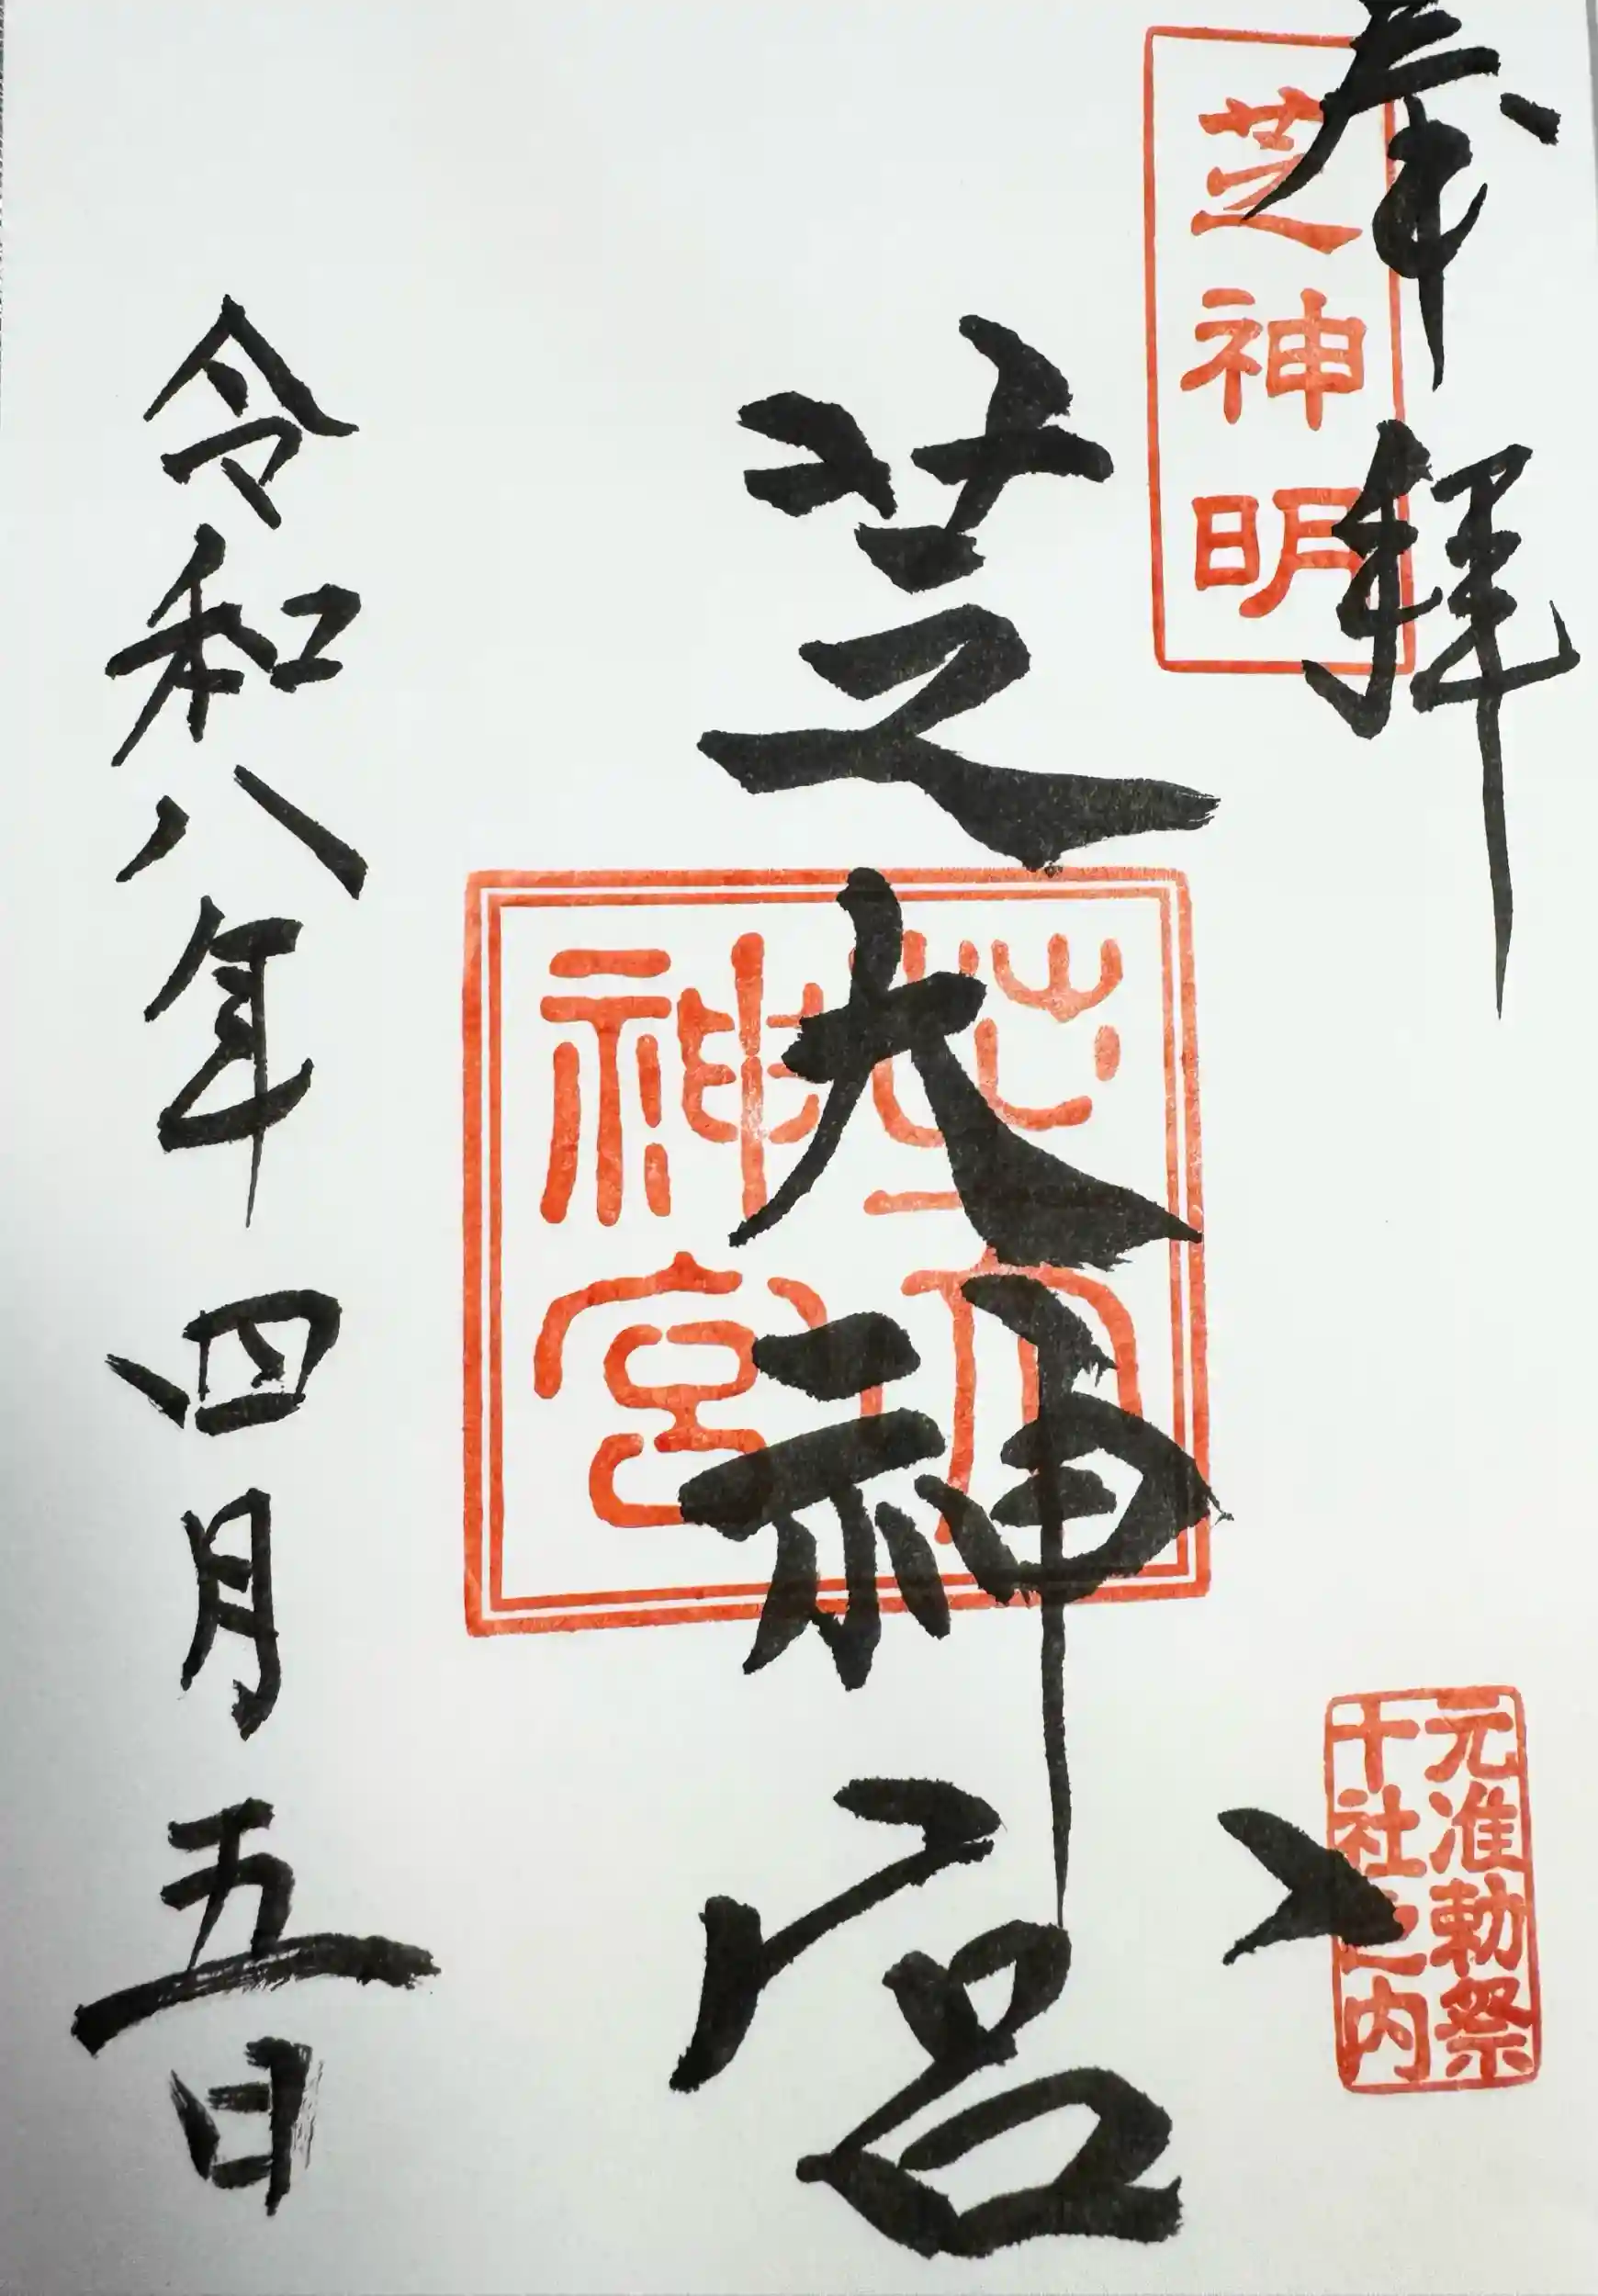 奉拝
芝神明
元准勅祭
十社之内
芝大神宮
芝大
神宮
令和八年四月五日